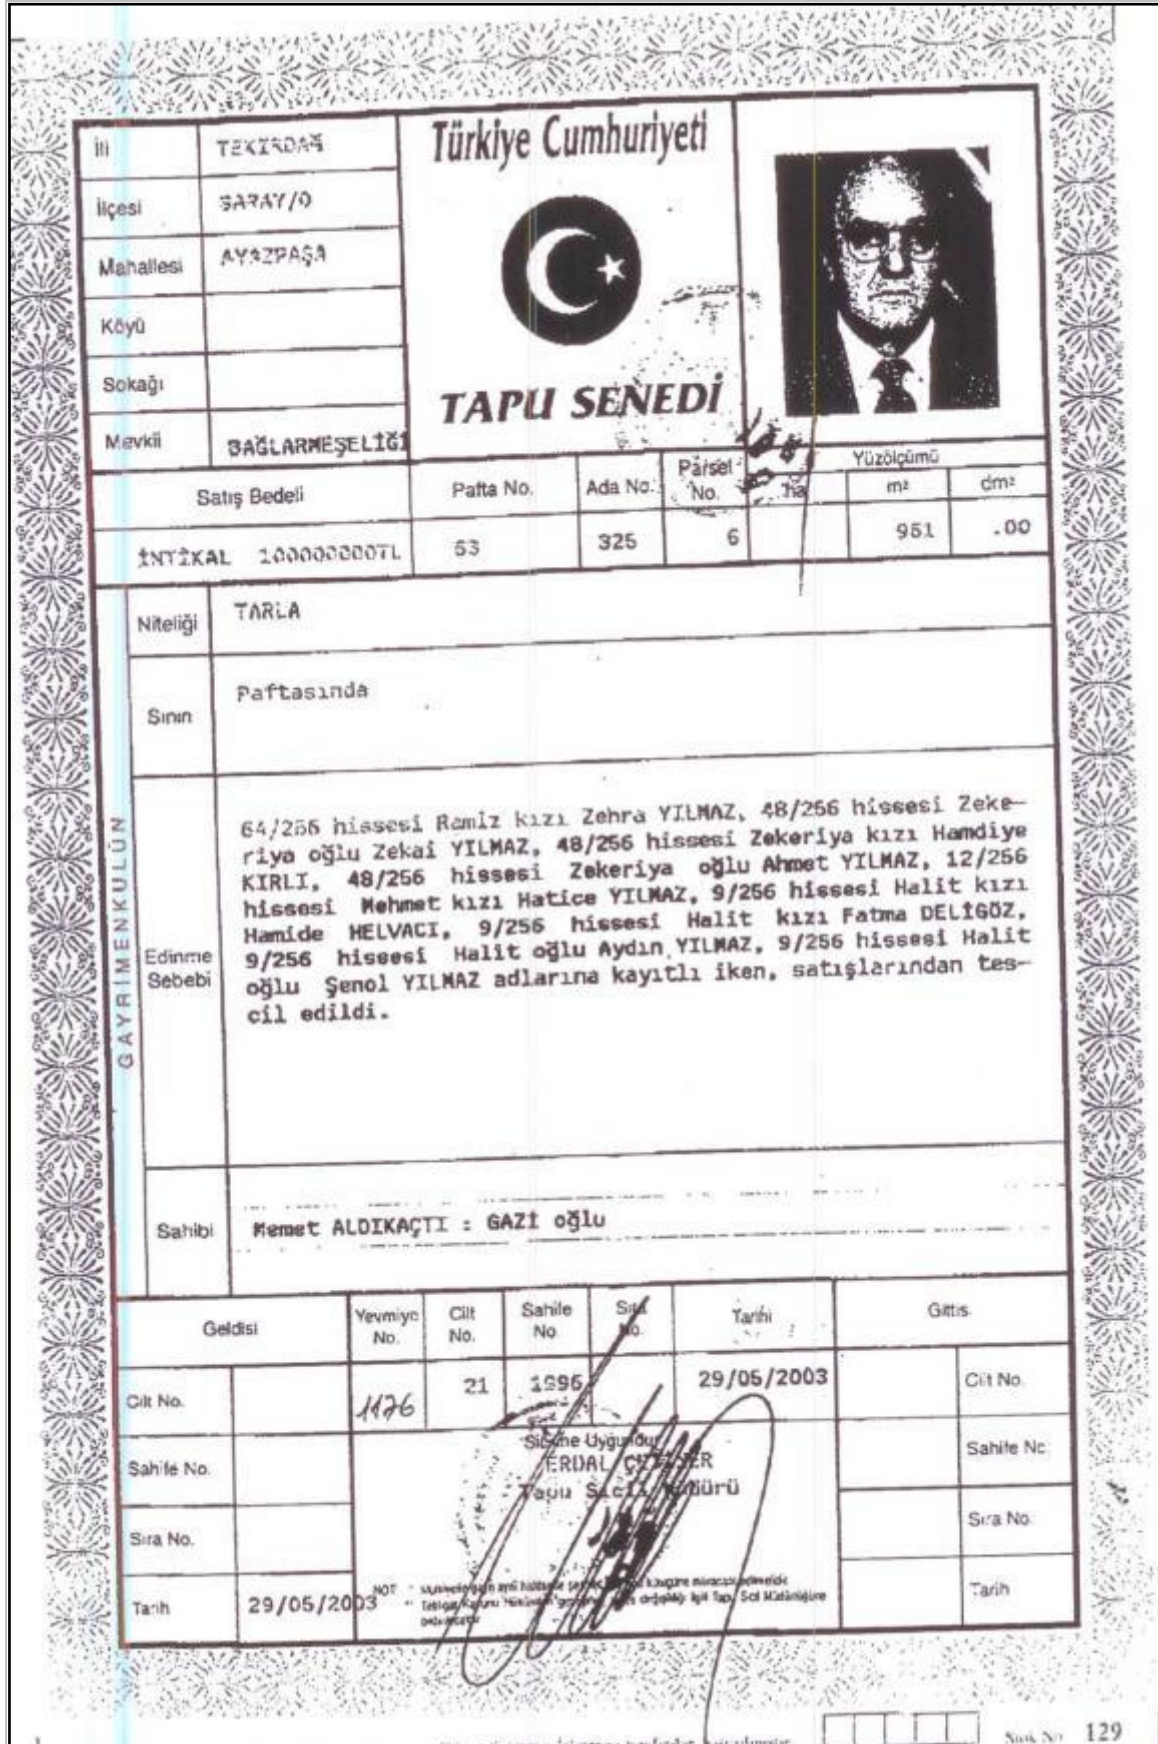 İli TEKİRDAĞ
İlçesi SARAY/O
Mahallesi AYAZPAŞA
Köyü
Sokağı
Mevkii BAĞLARMEŞELİĞİ
Türkiye Cumhuriyeti
TAPU SENEDİ
Satış Bedeli Pafta No. Ada No. Parsel No. Yüzölçümü
ha m² dm²
İNTİKAL 53 325 6 951 .00
GAYRİMENKULÜN
Niteliği TARLA
Sınırı Paftasında
Edinme Sebebi
64/256 hissesi Ramiz kızı Zehra YILMAZ, 48/256 hissesi Zeke-
riya oğlu Zekai YILMAZ, 48/256 hissesi Zekeriya kızı Hamdiye
KIRLI, 48/256 hissesi Zekeriya oğlu Ahmet YILMAZ, 12/256
hissesi Mehmet kızı Hatice YILMAZ, 9/256 hissesi Halit kızı
Hamide HELVACI, 9/256 hissesi Halit kızı Fatma DELİGÖZ,
9/256 hissesi Halit oğlu Aydın YILMAZ, 9/256 hissesi Halit
oğlu Şenol YILMAZ adlarına kayıtlı iken, satışlarından tes-
cil edildi.
Sahibi Memet ALDIKAÇTI : GAZİ oğlu
Geldisi Yevmiye No. Cilt No. Sahife No. Sıra No. Tarihi Gittis
Cilt No. 1176 21 1996 29/05/2003 Cilt No.
Siciline Uygundur
Sahife No. ERDAL Sahife No
Tapu Sicil Müdürü
Sıra No. Sıra No
Tarih 29/05/2003 Tarih
NOT
Stok No 129